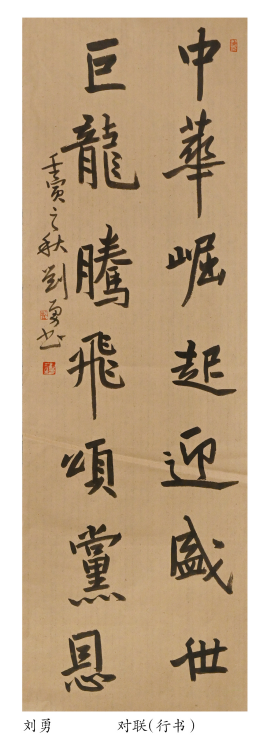 中華崛起迎盛世
巨龍騰飛頌黨恩
壬寅之秋劉勇书
刘勇 对联(行书)